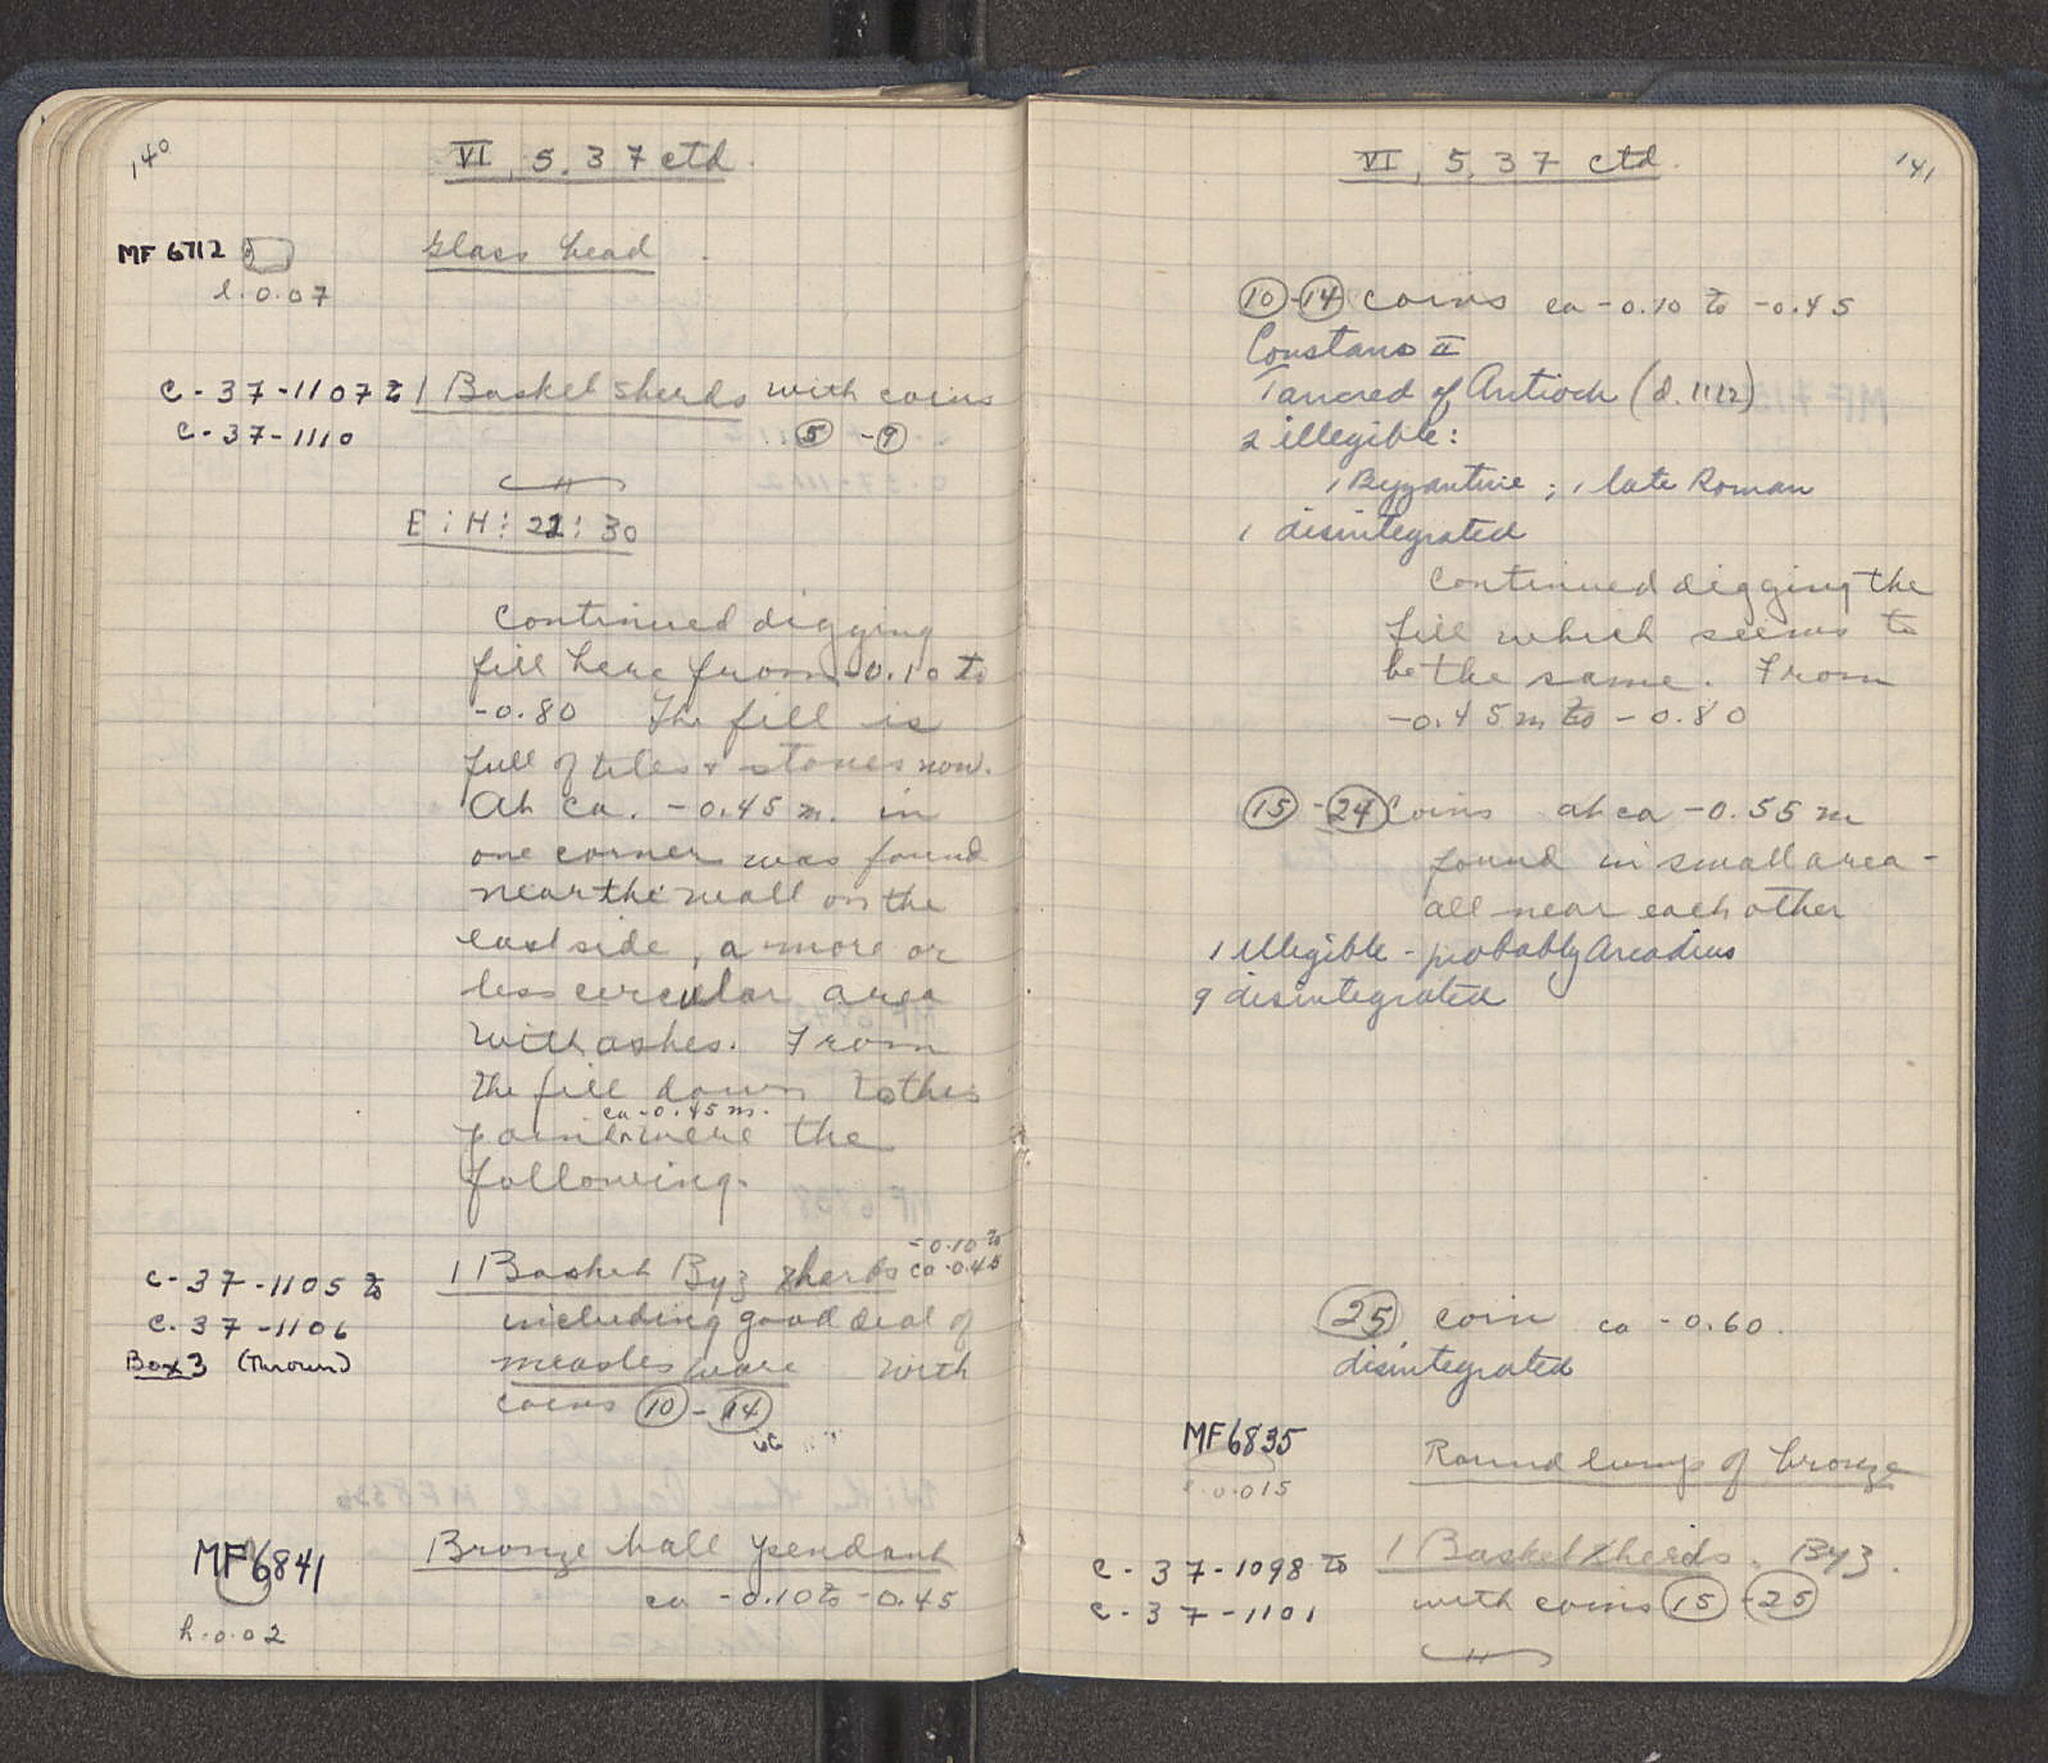 140
VI, 5. 37 ctd.
MF 6712
l. 0.07
Glass bead
C-37-1107 to
C-37-1110
1 Basket sherds with coins
5 - 9
E : H : 22 : 30
Continued digging
fill here from -0.10 to
-0.80 The fill is
full of tiles & stones now.
At ca. -0.45 m. in
one corner was found
near the wall on the
east side, a more or
less circular area
with ashes. From
the fill down to this
ca -0.45 m.
point were the
following.
C-37-1105 to
C-37-1106
Box 3 (Thrown)
1 Basket Byz sherds -0.10 to
ca -0.45
including good deal of
measles ware with
coins 10 - 14
MF 6841
h. 0.02
Bronze ball pendant
ca -0.10 to -0.45
VI, 5. 37 ctd.
141
10 - 14 coins ca -0.10 to -0.45
Constans II
Tancred of Antioch (d. 1112)
2 illegible:
1 Byzantine ; 1 late Roman
1 disintegrated
Continued digging the
fill which seems to
be the same. From
-0.45 m to -0.80
15 - 24 Coins at ca -0.55 m
found in small area -
all near each other
1 illegible - probably Arcadius
9 disintegrated
25 coin ca -0.60.
disintegrated
MF 6835
l. 0.015
Round lump of bronze
C-37-1098 to
C-37-1101
1 Basket sherds. Byz.
with coins 15 - 25